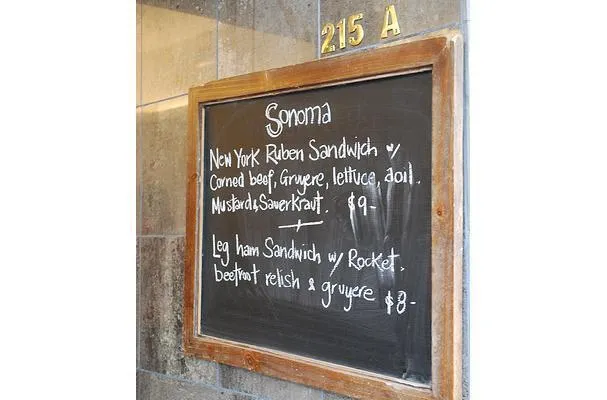 215 A
Sonoma
New York Ruben Sandwich w/
Corned beef, Gruyere, lettuce, aoil.
Mustard & Sauerkraut. $9-
Leg ham Sandwich w/ Rocket,
beetroot relish & gruyere $8-